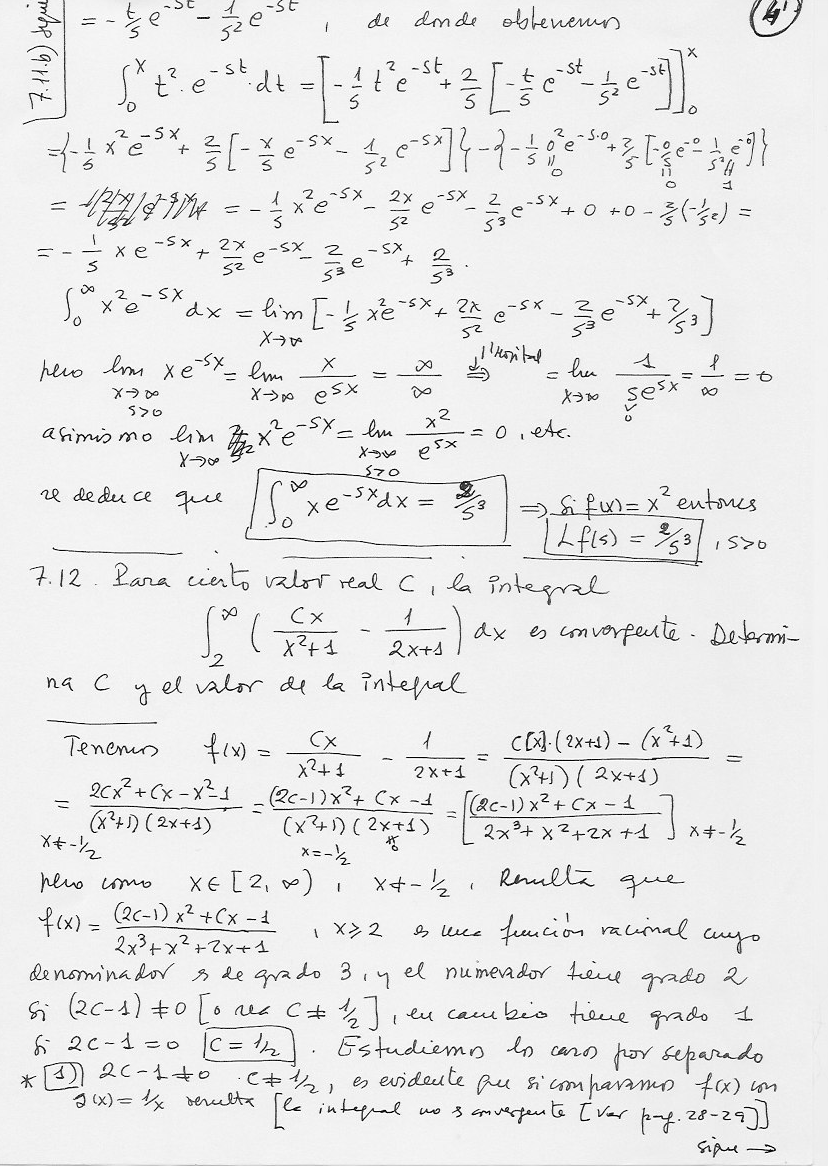 4'
7.11.9)
= -t/s e^{-st} - 1/s² e^{-st}, de donde obtenemos
∫₀^x t²·e^{-st}·dt = [-1/s t² e^{-st} + 2/s [-t/s e^{-st} - 1/s² e^{-st}]]₀^x
= {-1/s x² e^{-sx} + 2/s [-x/s e^{-sx} - 1/s² e^{-sx}]} - {-1/s 0² e^{-s·0} + 2/s [-0/s e^{-0} - 1/s² e^{-0}]}
= = -1/s x² e^{-sx} - 2x/s² e^{-sx} - 2/s³ e^{-sx} + 0 + 0 - 2/s (-1/s²) =
= -1/s x e^{-sx} + 2x/s² e^{-sx} - 2/s³ e^{-sx} + 2/s³.
∫₀^∞ x² e^{-sx} dx = lim_{x→∞} [-1/s x² e^{-sx} + 2x/s² e^{-sx} - 2/s³ e^{-sx} + 2/s³]
pero lim_{x→∞, s>0} x e^{-sx} = lim_{x→∞} x/e^{sx} = ∞/∞ ⇒ l'Hopital = lim_{x→∞} 1/(s e^{sx}) = 1/∞ = 0
asimismo lim_{x→∞} x² e^{-sx} = lim_{x→∞, s>0} x²/e^{sx} = 0, etc.
se deduce que ∫₀^∞ x e^{-sx} dx = 2/s³ ⇒ Si f(x) = x² entonces
Lf(s) = 2/s³, s>0
7.12. Para cierto valor real C, la integral
∫₂^∞ (Cx/(x²+1) - 1/(2x+1)) dx es convergente. Determi-
na C y el valor de la integral
Tenemos f(x) = Cx/(x²+1) - 1/(2x+1) = (C[x]·(2x+1) - (x²+1))/((x²+1)(2x+1)) =
= (2Cx²+Cx-x²-1)/((x²+1)(2x+1)) = ((2C-1)x²+Cx-1)/((x²+1)(2x+1)) = [((2C-1)x²+Cx-1)/(2x³+x²+2x+1)] x≠-1/2
x≠-1/2 x=-1/2 ≠0
pero como x∈[2,∞), x≠-1/2, Resulta que
f(x) = ((2C-1)x²+Cx-1)/(2x³+x²+2x+1), x≥2 es una función racional cuyo
denominador es de grado 3, y el numerador tiene grado 2
si (2C-1)≠0 [o sea C≠1/2], en cambio tiene grado 1
si 2C-1=0 C=1/2. Estudiemos los casos por separado
* 1)) 2C-1≠0 C≠1/2, es evidente que si comparamos f(x) con
g(x)=1/x resulta [la integral no es convergente [Ver pág. 28-29]]
sigue →